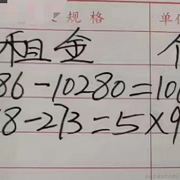 规格 单位
租金 个
86-10280=10
8-273=5×9